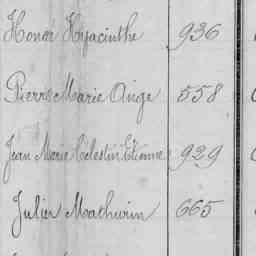 Honoré Hyacinthe 936
Pierre Marie Ange 558
Jean Marie Célestin Etienne 929
Julien Mathurin 665